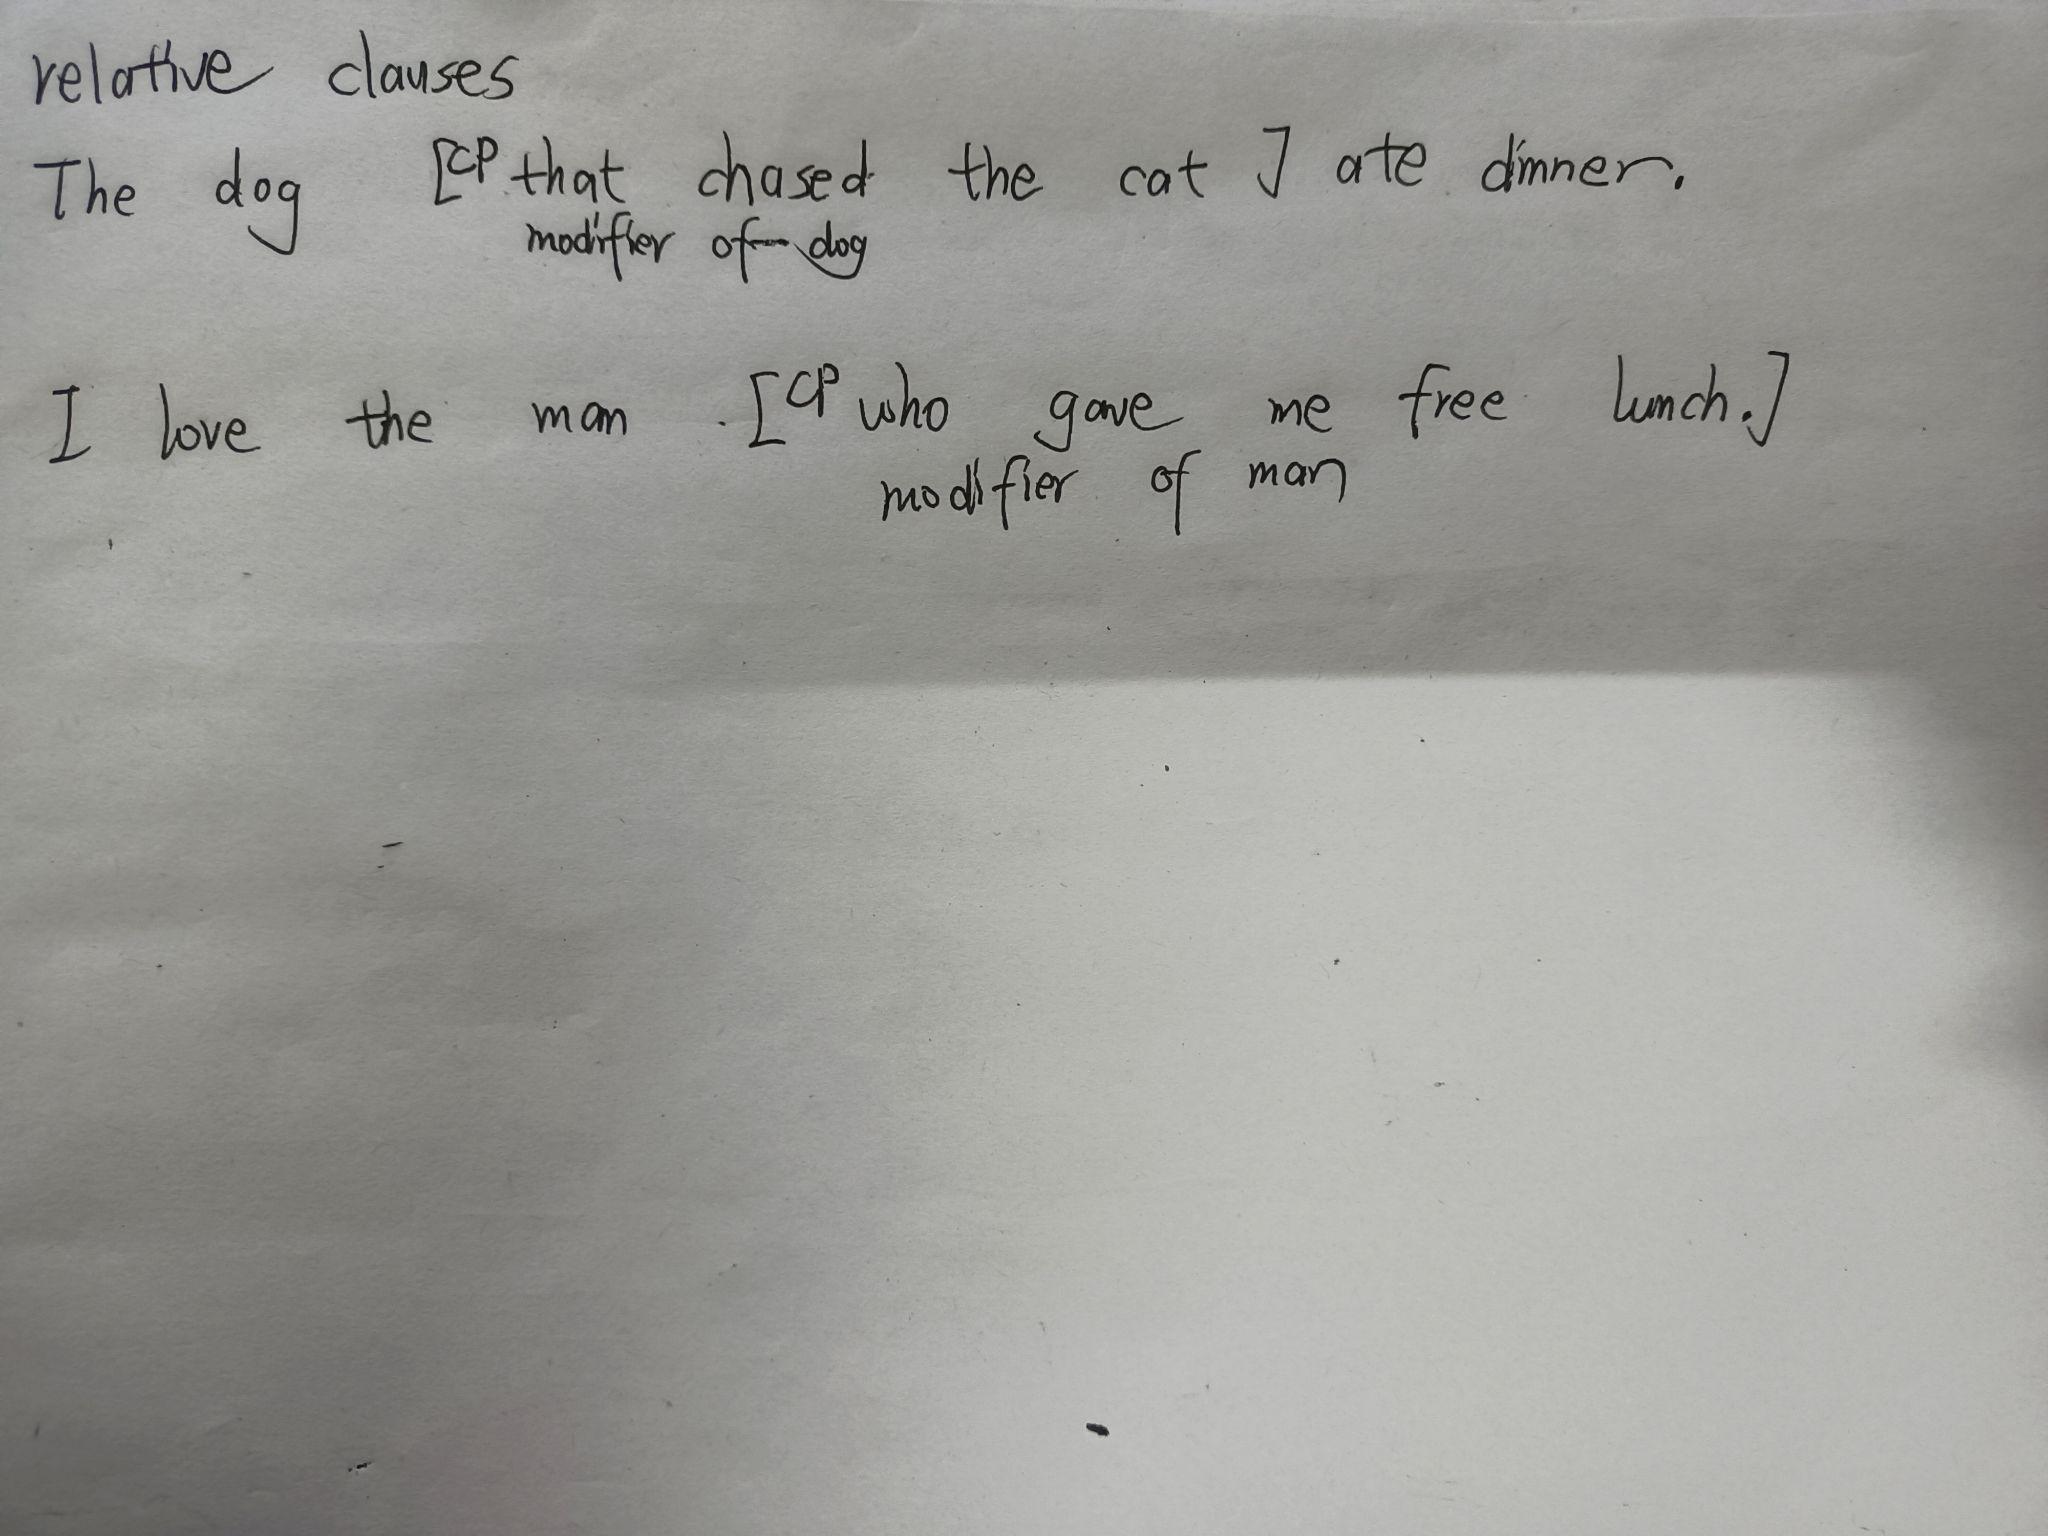 relative clauses
The dog [CP that chased the cat ] ate dinner.
modifier of dog
I love the man [CP who gave me free lunch.]
modifier of man